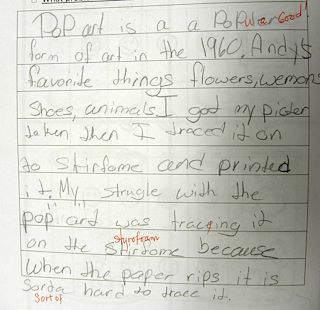 Pop art is a a Popular Good!
form of art in the 1960. Andy's
favorite things flowers, wemons
Shoes, animals. I got my picter
taken then I traced it on
to stirfome and printed
it. My strugle with the
pop art was tracting it
styrofoam
on the stirfome because
when the paper rips it is
Sorda hard to trace it.
Sort of